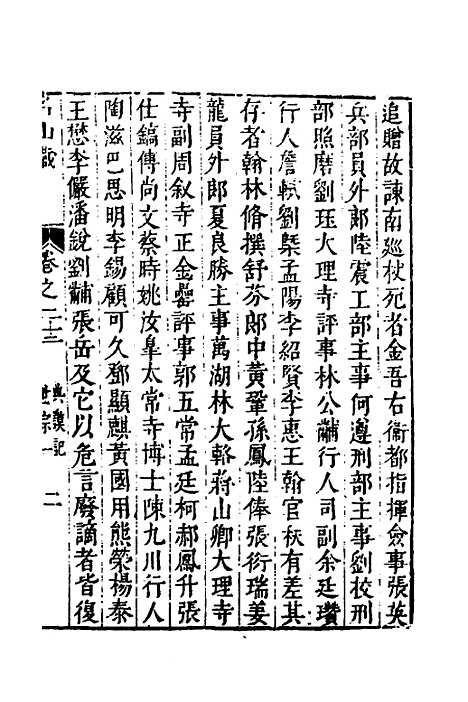 追贈故諫南廵杖死者金吾右衞都指揮僉事張英
兵部員外郎陸震工部主事何遵刑部主事劉校刑
部照磨劉珏大理寺評事林公黼行人司副余廷瓚
行人詹軾劉槩孟陽李紹賢李惠王翰官秩有差其
存者翰林脩撰舒芬郎中黃鞏孫鳳陸俸張衍瑞姜
龍員外郎夏良勝主事萬湖林大輅蔣山卿大理寺
寺副周叙寺正金罍評事郭五常孟廷柯郝鳳升張
仕鎬傅尚文蔡時姚汝臯太常寺博士陳九川行人
陶滋巴思明李錫顧可久鄧顯麒黃國用熊榮楊泰
王懋李儼潘銳劉黼張岳及它以危言廢謫者皆復
名山藏 卷之二十三 典謨記 世宗一 二